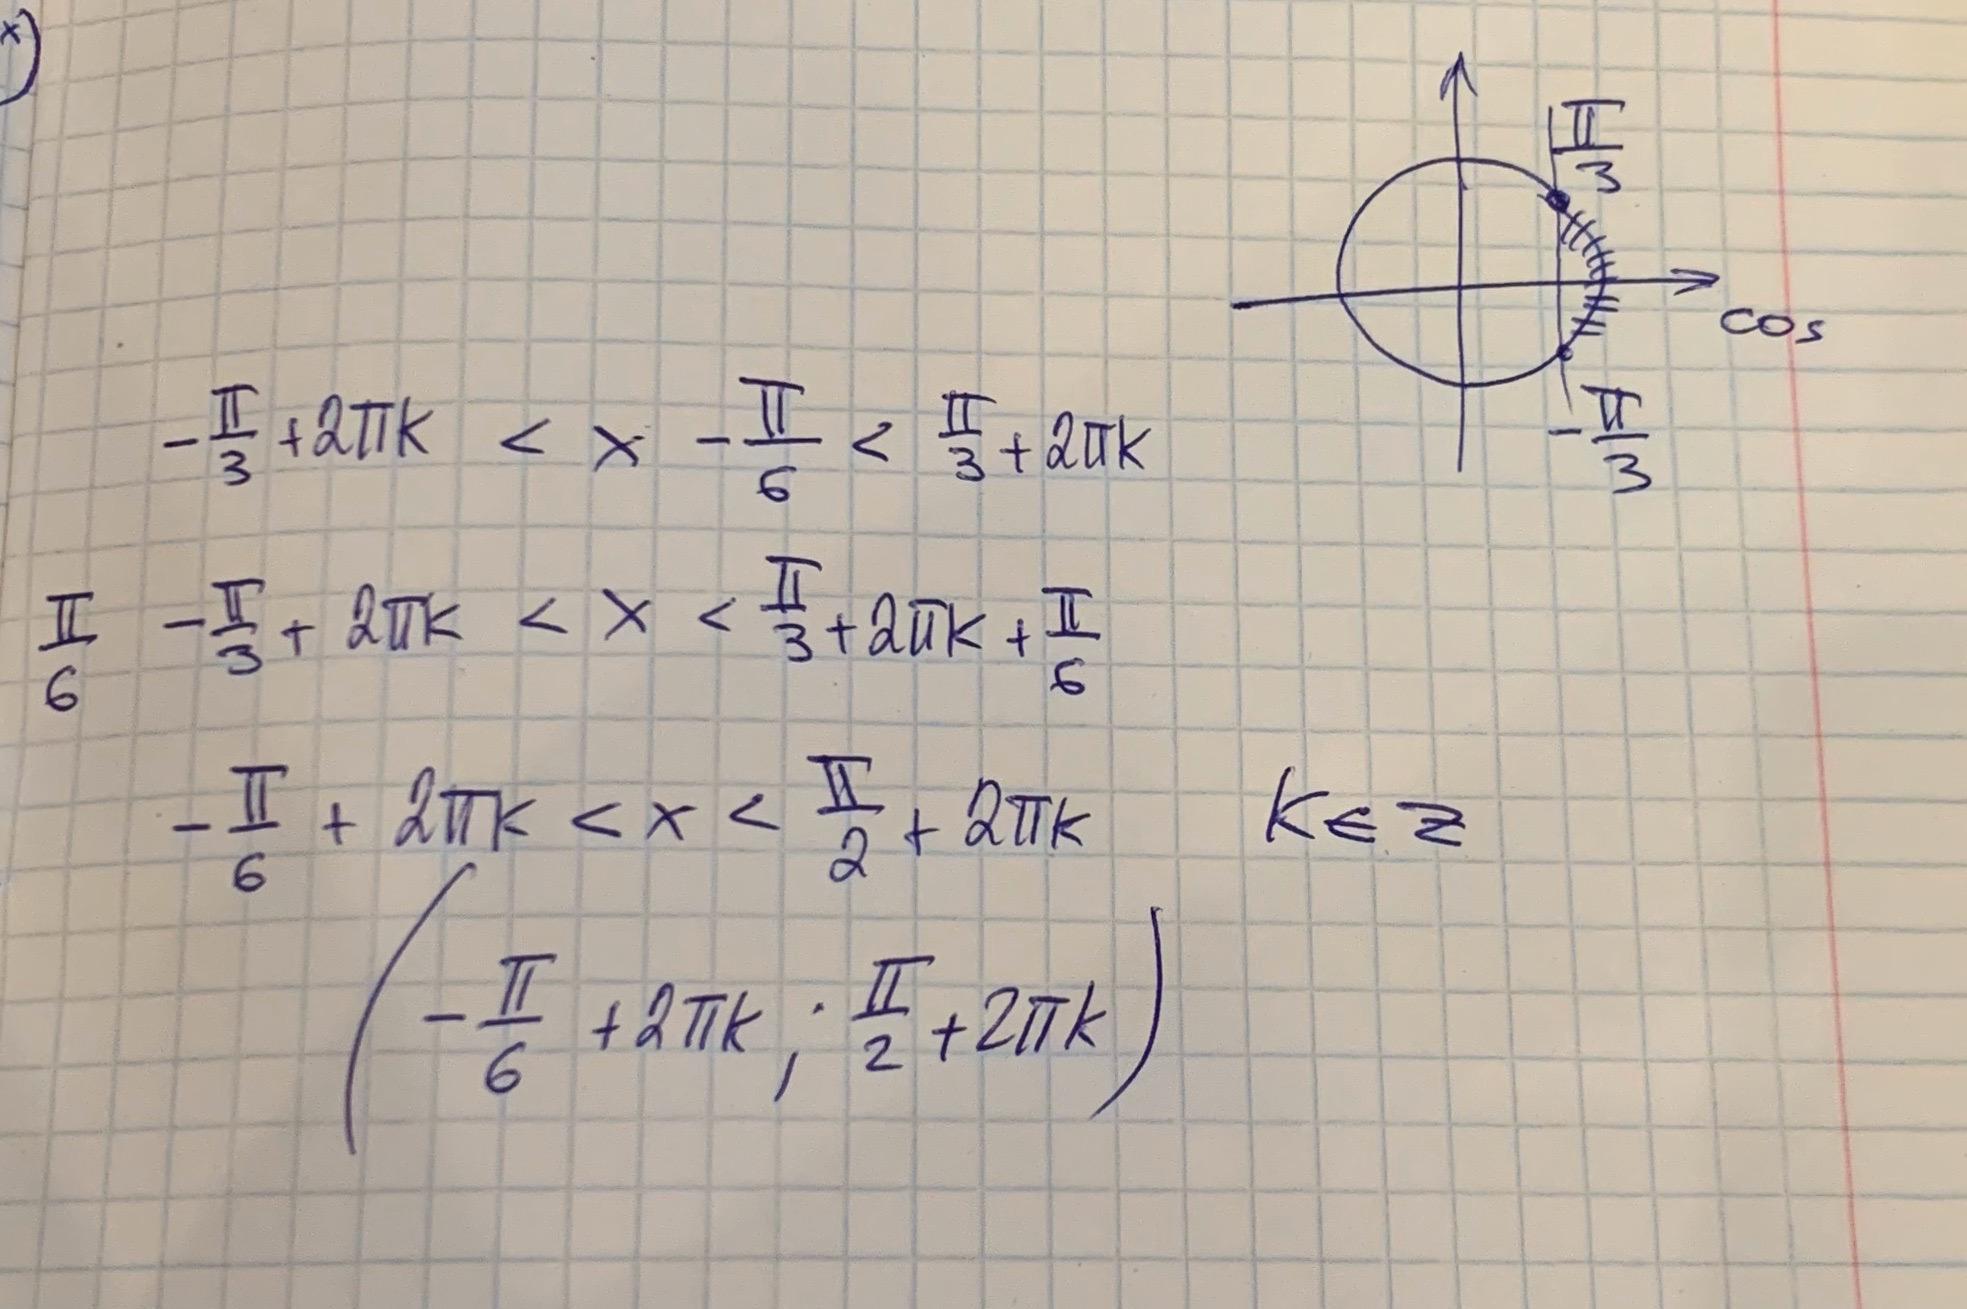 x)
π/3
cos
-π/3
-π/3 + 2πk < x - π/6 < π/3 + 2πk
π/6 - π/3 + 2πk < x < π/3 + 2πk + π/6
-π/6 + 2πk < x < π/2 + 2πk k ∈ Z
(-π/6 + 2πk ; π/2 + 2πk)